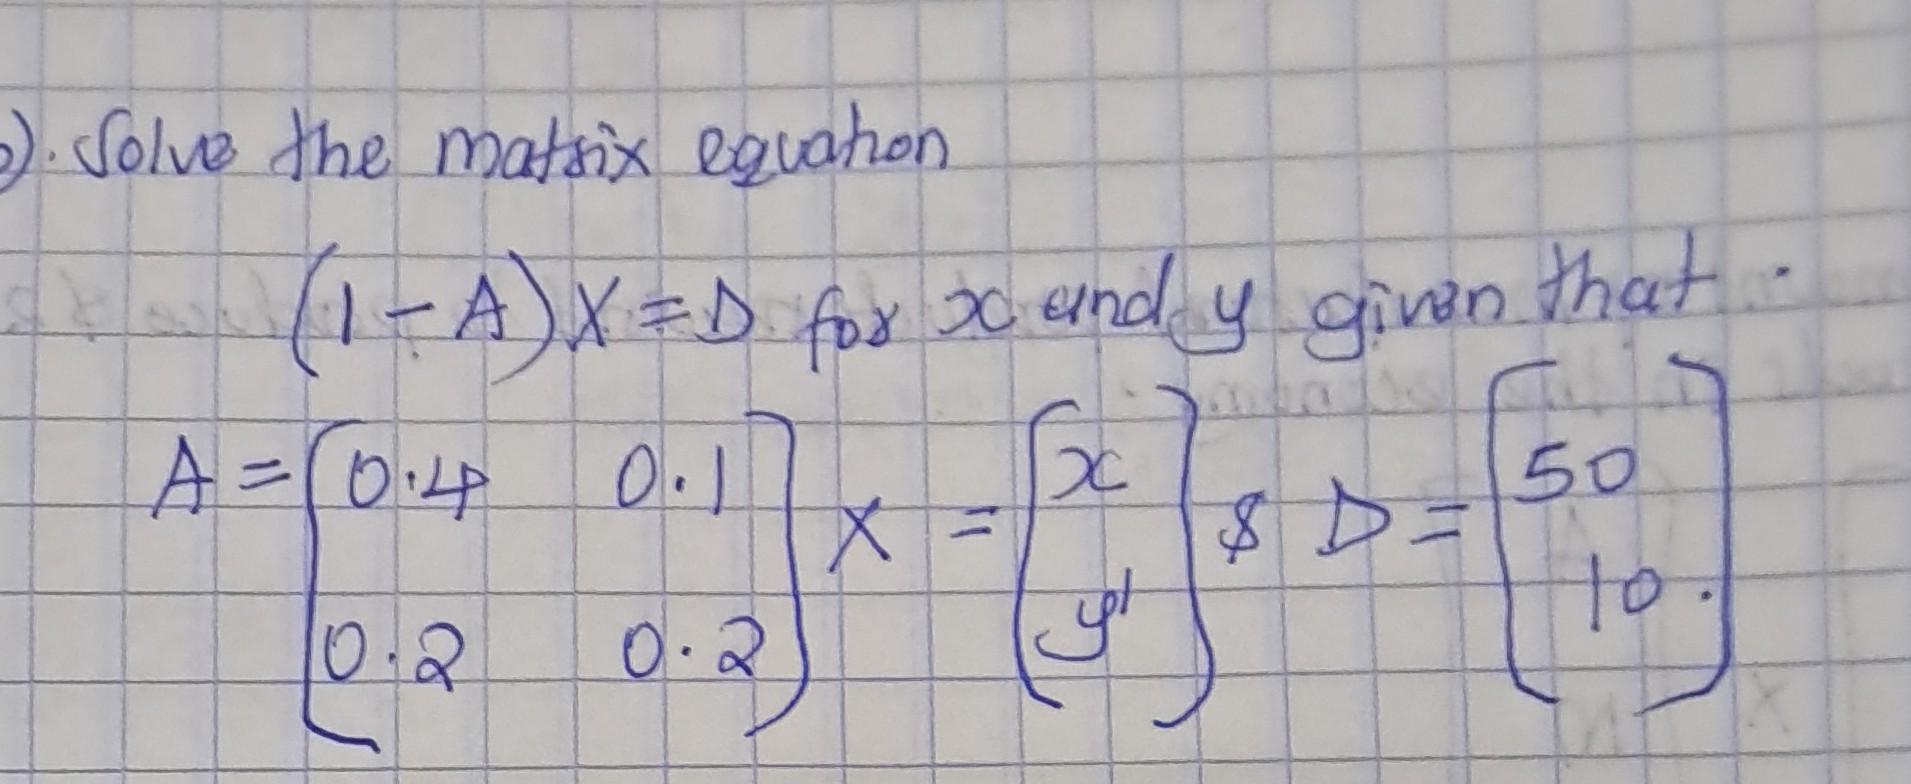 ). Solve the matrix equation
(1 - A) X = D for x and y given that .
A = [0.4 0.1
0.2 0.2] X = (x
y) & D = [50
10.]